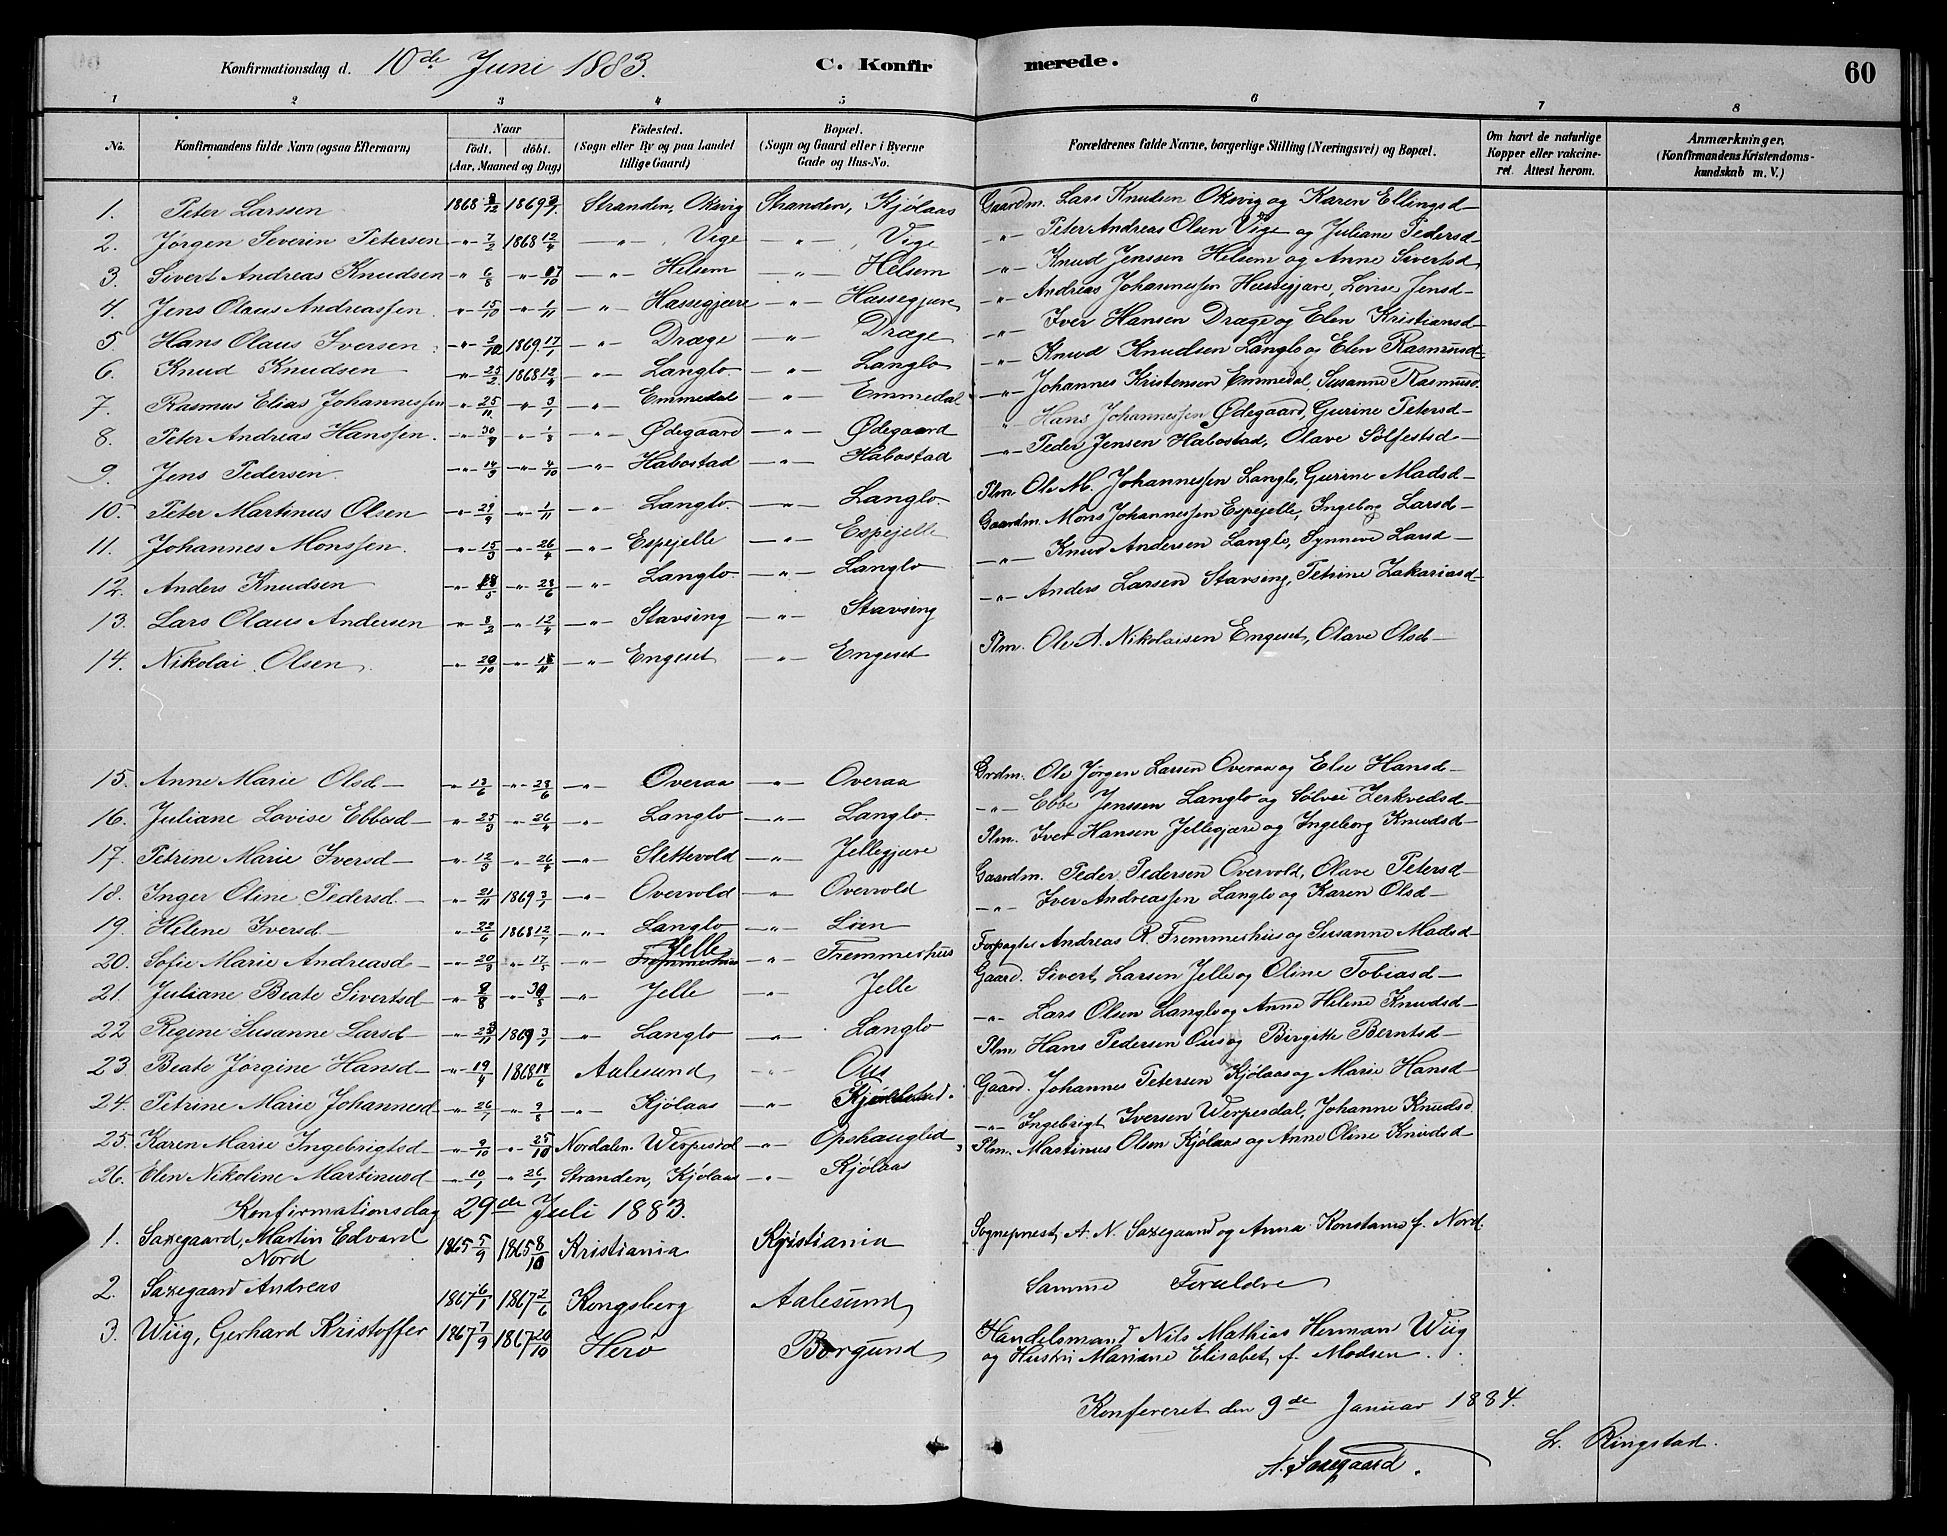 Konfirmationsdag d. 10de Juni 1883. C. Konfirmerede. 60
1 2 3 4 5 6 7 8
No. Konfirmandens fulde Navn (ogsaa Efternavn) Naar födt. döbt. (Aar, Maaned og Dag) Födested. (Sogn eller By og paa Landet tillige Gaard) Bopæl. (Sogn og Gaard eller i Byerne Gade og Hus-No. Forældrenes fulde Navne, borgerlige Stilling (Næringsvei) og Bopæl. Om havt de naturlige Kopper eller vakcineret. Attest herom. Anmærkninger. (Konfirmandens Kristendomskundskab m. V.)
1. Peter Larssen 1868 8/12 1869 3/1 Stranden, Oksvig Stranden, Kjølaas Gaardm. Lars Knutsen Oksvig og Karen Ellingsd—
2. Jørgen Severin Petersen -"- 7/2 1868 12/4 —"— Vige —"—, Vige —"— Peter Andreas Olsen Vige og Juliane Pedersd—
3. Sivert Andreas Knudsen " 6/8 " 17/10 —"— Helsem —"— Helsem —"— Knud Jenssen Helsem og Anne Sivertsd
4. Jens Olaus Andreassen -"- 15/10 -"- 1/11 —"— Hassegjære —"— Hassegjære —"— Andreas Johannessen Hassegjære, Lovise Jensd—
5. Hans Olaus Iversen -"- 2/12 1869 17/1 —"— Dræge —"— Dræge —"— Iver Hansen Dræge og Elen Kristiansd—
6. Knud Knudsen -"- 25/2 1868 12/4 —"— Langlo —"— Langlo —"— Knud Knudsen Langlo og Elen Rasmusd—
7. Rasmus Elias Johannessen -"- 25/11 -"- 3/1 —"— Emmedal —"— Emmedal —"— Johannes Kristensen Emmedal, Susanne Rasmusd.
8. Peter Andreas Hanssen. -"- -"- —"— Ødegaard —"— Ødegaard —"— Hans Johannessen Ødegaard, Gurine Petersd—
9. Jens Pedersen -"- 14/9 -"- 4/10 —"— Habostad —"— Habostad —"— Peder Jensen Habostad, Olave Sølfestsd—
10. Peter Martinus Olsen -"- 29/9 -"- 1/11 —"— Langlo. —"— Langlo. Plm. Ole M. Johannessen Langlo, Gurine Madsd—
11. Johannes Monssen. -"- 15/3 -"- 26/4 —"— Espejelle —"— Espejelle Gaardm. Mons Johannessen Espejelle, Ingeborg Larsd—
12. Anders Knudsen -"- 18/5 -"- 28/6 —"— Langlo. —"— Langlo —"— Knud Andersen Langlo, Synneve Larsd—
13. Lars Olaus Andersen -"- 8/2 -"- 12/4 —"— Stavsing —"— Stavsing —"— Anders Larsen Stavsing, Petrine Zakariasd—
14. Nikolai Olsen -"- 20/10 -"- 18/11 —"— Engeset —"— Engeset Plm. Ole A. Nikolaisen Engeset, Olave Olsd—
15. Anne Marie Olsd— -"- 13/6 -"- 28/6 —"— Overaa —"— Overaa Grdm. Ole Jørgen Larsen Overaa og Else Hansd—
16. Juliane Lovise Ebbesd— -"- 25/3 -"- 26/4 —"— Langlo —"— Langlo. —"— Ebbe Jenssen Langlo og Sølvei Zerkvedsd—
17. Petrine Marie Iversd— -"- 12/3 -"- 26/4 —"— Slettevold —"— Jellegjære Plm. Iver Hansen Jellegjære og Ingeborg Knudsd—
18. Inger Oline Pedersd.— -"- 21/11 1869 3/1 —"— Overvold —"— Overvold Gaardm. Peder Pedersen Overvold, Olave Petersd—
19. Helene Iversd— -"- 22/6 1868 12/7 —"— Langlo —"— Lien —"— Iver Andreassen Langlo og Karen Olsd—
20. Sofie Marie Andreasd— -"- 20/3 -"- 17/5 —"— Jelle —"— Fremmerhus Forpagter Andreas R. Fremmerhus og Susanne Madsd—
21. Juliane Beate Sivertsd— -"- 9/8 -"- 30/8 —"— Jelle —"— Jelle Gaard. Sivert Larsen Jelle og Oline Tobiasd—
22 Regine Susanne Larsd— -"- 23/11 1869 3/1 —"— Langlo —"— Langlo —"— Lars Olsen Langlo og Anne Helene Knudsd—
23. Beate Jørgine Hansd— -"- 19/4 1868 14/6 Aalesund —"— Ous Plm. Hans Pedersen Ous og Birgitte Berntsd—
24. Petrine Marie Johannesd -"- 26/7 -"- 9/8 —"— Kjølaas —"— Gaard. Johannes Petersen Kjølaas og Marie Hansd—
25. Karen Marie Ingebrigtsd— -"- 9/10 -"- 25/10 Nordalen. Werpesdal —"— Opshauglid —"— Ingebrigt Iversen Werpesdal, Johanne Knudsd.
26. Elen Nikoline Martinusd -"- 10/1 -"- 26/1 Stranden, Kjølaas —"— Kjølaas Plm. Martinus Olsen Kjølaas og Anne Oline Knudsd—
Konfirmationsdag 29de Juli 1883.
1. Saxegaard, Martin Edvard Nord 1865 5/9 1865 8/10 Kristiania Kristiania Sogneprest A. N. Saxegaard og Anna Konstance f. Nord.
2. Saxegaard Andreas 1867 6/1 1867 2/6 Kongsberg Aalesund Samme Foreldre
3. Wiig, Gerhard Kristoffer 1867 7/9 1867 20/10 Herö Borgund Handelsmand Nils Mathias Herman Wiig
og Hustru Mariane Elisabet f. Madsen.
Konfereret den 9de Januar 1884.
A. Saxegaard. L. Ringstad.